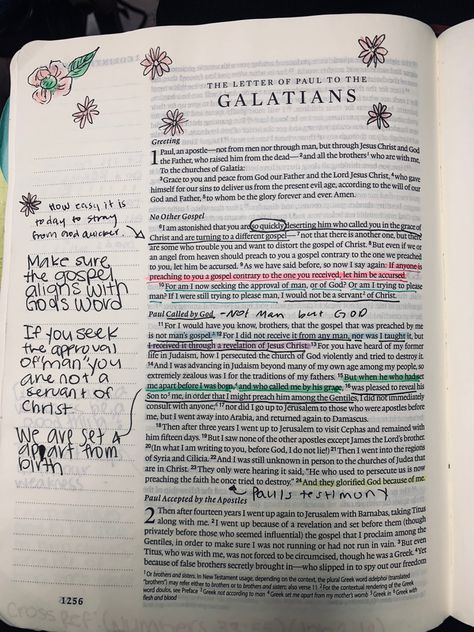 THE LETTER OF PAUL TO THE
GALATIANS
Greeting
1 Paul, an apostle—not from men nor through man, but through Jesus Christ and God
the Father, who raised him from the dead—²and all the brothers¹ who are with me,
To the churches of Galatia:
³Grace to you and peace from God our Father and the Lord Jesus Christ, ⁴who gave
himself for our sins to deliver us from the present evil age, according to the will of our
God and Father, ⁵to whom be the glory forever and ever. Amen.
No Other Gospel
⁶I am astonished that you are so quickly deserting him who called you in the grace of
Christ and are turning to a different gospel—⁷not that there is another one, but there
are some who trouble you and want to distort the gospel of Christ. ⁸But even if we or
an angel from heaven should preach to you a gospel contrary to the one we preached
to you, let him be accursed. ⁹As we have said before, so now I say again: If anyone is
preaching to you a gospel contrary to the one you received, let him be accursed.
¹⁰For am I now seeking the approval of man, or of God? Or am I trying to please
man? If I were still trying to please man, I would not be a servant² of Christ.
Paul Called by God - Not Man but GOD
¹¹For I would have you know, brothers, that the gospel that was preached by me
is not man's gospel.³ ¹²For I did not receive it from any man, nor was I taught it, but
I received it through a revelation of Jesus Christ. ¹³For you have heard of my former
life in Judaism, how I persecuted the church of God violently and tried to destroy it.
¹⁴And I was advancing in Judaism beyond many of my own age among my people, so
extremely zealous was I for the traditions of my fathers. ¹⁵But when he who had set
me apart before I was born,⁴ and who called me by his grace, ¹⁶was pleased to reveal his
Son to⁵ me, in order that I might preach him among the Gentiles, I did not immediately
consult with anyone;⁶ ¹⁷nor did I go up to Jerusalem to those who were apostles before
me, but I went away into Arabia, and returned again to Damascus.
¹⁸Then after three years I went up to Jerusalem to visit Cephas and remained with
him fifteen days. ¹⁹But I saw none of the other apostles except James the Lord's brother.
²⁰(In what I am writing to you, before God, I do not lie!) ²¹Then I went into the regions
of Syria and Cilicia. ²²And I was still unknown in person to the churches of Judea that
are in Christ. ²³They only were hearing it said, "He who used to persecute us is now
preaching the faith he once tried to destroy." ²⁴And they glorified God because of me.
Paul's testimony
Paul Accepted by the Apostles
2 Then after fourteen years I went up again to Jerusalem with Barnabas, taking Titus
along with me. ²I went up because of a revelation and set before them (though
privately before those who seemed influential) the gospel that I proclaim among the
Gentiles, in order to make sure I was not running or had not run in vain. ³But even
Titus, who was with me, was not forced to be circumcised, though he was a Greek. ⁴Yet
because of false brothers secretly brought in—who slipped in to spy out our freedom
¹ Or brothers and sisters. In New Testament usage, depending on the context, the plural Greek word adelphoi (translated
"brothers") may refer either to brothers or to brothers and sisters; also verse 11 ² For the contextual rendering of the Greek
word doulos, see Preface ³ Greek not according to man ⁴ Greek set me apart from my mother's womb ⁵ Greek in ⁶ Greek with
flesh and blood
How easy it is
today to stray
from God quicker.
Make sure
the gospel
aligns with
God's word
If you seek
the approval
of man, you
are not a
servant of
Christ
We are set a
apart from
birth
weakness
1256